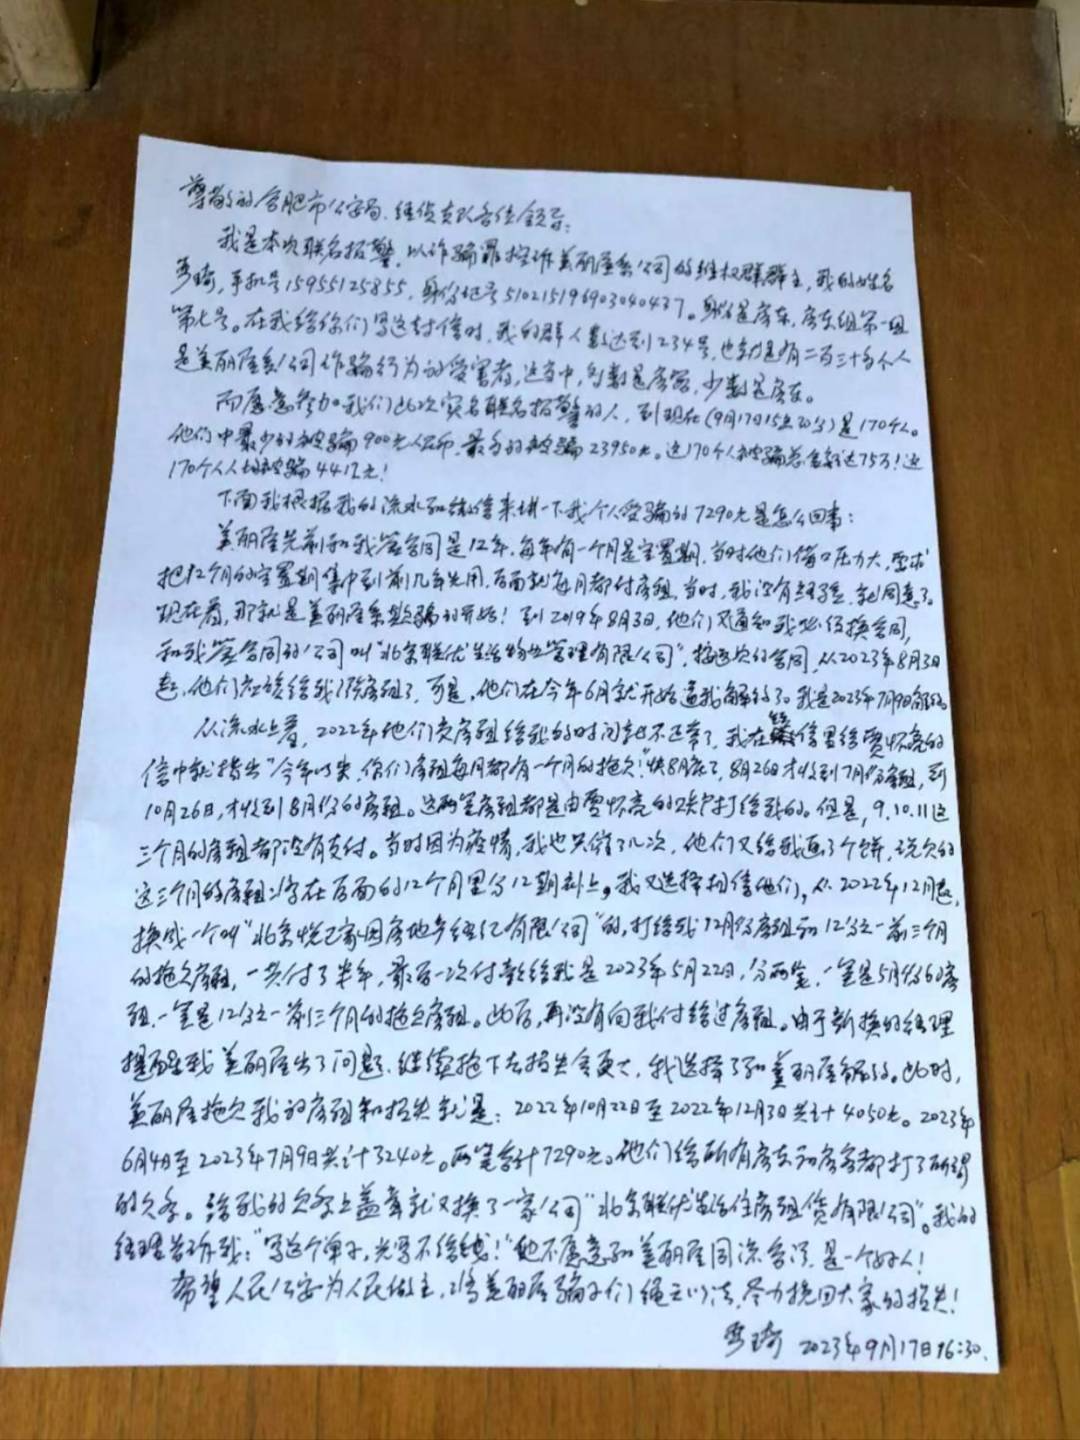 尊敬的合肥市公安局、经侦支队各位领导：
我是本次联名报警，以诈骗罪控诉美丽屋系公司的维权群群主，我的姓名
琦，手机号15955125855，身份证号510215196903040437。身份是房东，房东组第一组
第七号。在我给你们写这封信时，我的群人数达到234号，也就是有二百三十多个人
是美丽屋系公司诈骗行为的受害者，这当中，多数是房客，少数是房东。
而愿意参加我们此次实名联名报警的人，到现在(9月17日15点20分)是170个。
他们中最少的被骗900元人民币，最多的被骗23950元。这170个人被骗总金额达75万！这
170个人人均被骗4412元！
下面我根据我的流水和微信来讲一下我个人受骗的7290元是怎么回事：
美丽屋先前和我签合同是12年，每年有一个月是空置期，当时他们借口压力大，要求
把12个月的空置期集中到前几年先用，后面就每月都付房租，当时，我没有经验，就同意了。
现在看，那就是美丽屋系欺骗的开始！到2019年8月3日，他们又通知我必须换合同，
和我签合同的公司叫“北京联优生活物业管理有限公司”，按这次的合同，从2023年8月3日
起，他们应该给我涨房租了，可是，他们在今年6月就开始逼我解约了。我是2023年7月9日解约
从流水上看，2022年他们卖房租给我的时间就不正常了，我在微信里给贾怀亮的
信中就指出“今年以来，你们房租每月都有一个月的拖欠！”快8月底了，8月26日才收到7月份房租，到
10月26日，才收到8月份的房租。这两笔房租都是由贾怀亮的账户打给我的。但是，9.10.11这
三个月的房租都没有支付。当时因为疫情，我也只催了几次，他们又给我画了个饼，说欠的
这三个月的房租将在后面的12个月里分12期补上，我又选择相信他们，从2022年12月起，
换成一个叫“北京悦己家园房地产经纪有限公司”的，打给我12月份房租和12分之一前三个月
的拖欠房租，一共付了半年，最后一次付款给我是2023年5月22日，分两笔，一笔是5月份的房
租，一笔是12分之一前三个月的拖欠房租。此后，再没有向我付给过房租。由于新换的经理
提醒我美丽屋出了问题，继续拖下去损失会更大，我选择了和美丽屋解约。此时，
美丽屋拖欠我的房租和损失就是：2022年10月22日至2022年12月3日共计4050元。2023年
6月4日至2023年7月9日共计3240元。两笔合计7290元。他们给所有房东和房客都打了所谓
的欠条。给我的欠条上盖章就又换了一家公司“北京联优生活住房租赁有限公司”。我的
经理告诉我：“写这个单子，光写不给钱！”他不愿意和美丽屋同流合污，是一个好人！
希望人民公安为人民做主，将美丽屋骗子们绳之以法，尽力挽回大家的损失！
琦 2023年9月17日16:30.